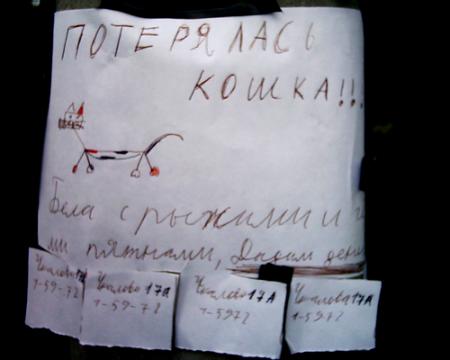 ПОТЕРЯЛАСЬ
КОШКА!!.
Бела с рыжими и
ми пятнами, Дадим
Чкалова 17а
1-59-72
Чкалова 17а
1-59-72
Чкалова 17А
1-5972
Чкалова 17А
1-5972